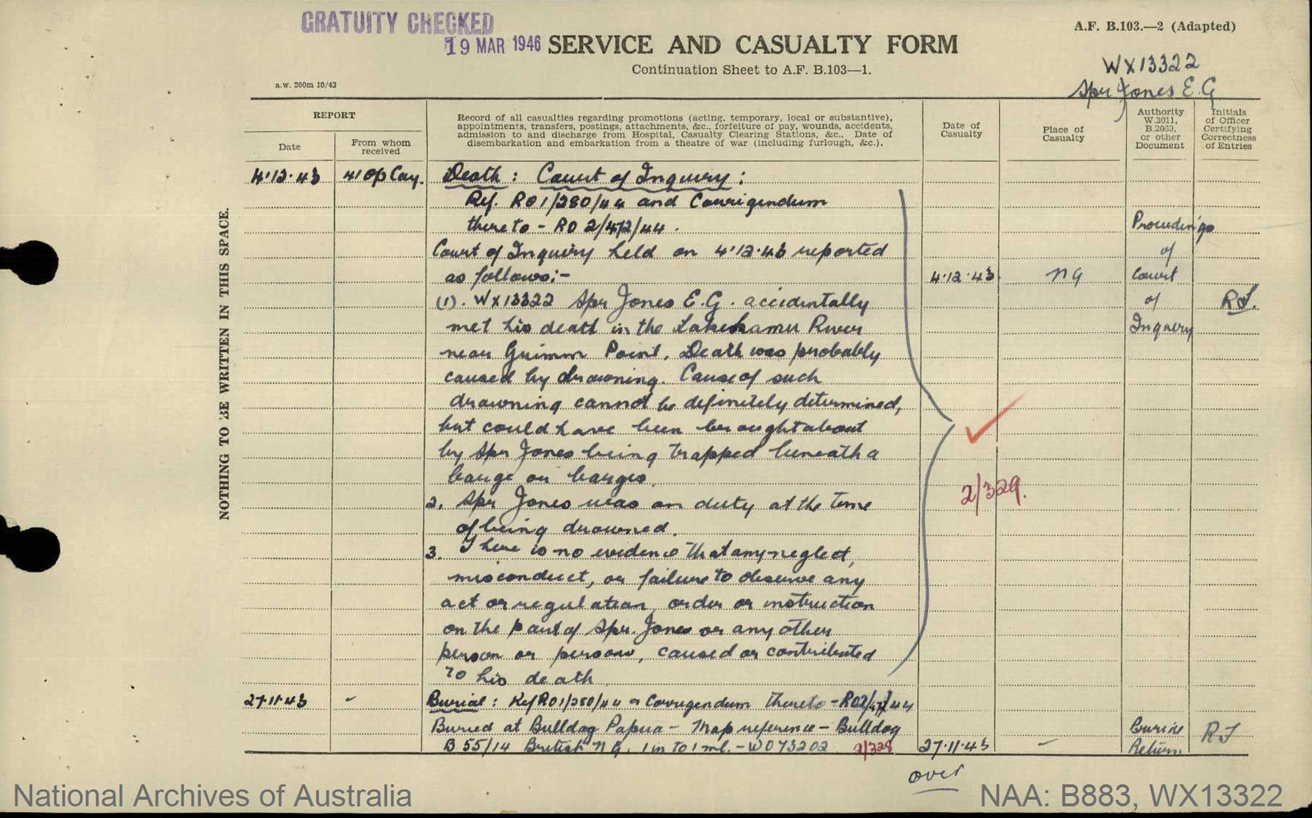 GRATUITY CHECKED
19 MAR 1946
SERVICE AND CASUALTY FORM
Continuation Sheet to A.F. B.103—1.
A.F. B.103.—2 (Adapted)
WX13322
Spr Jones E.G
a.w. 200m 10/43
REPORT
Date
From whom received
Record of all casualties regarding promotions (acting, temporary, local or substantive),
appointments, transfers, postings, attachments, &c., forfeiture of pay, wounds, accidents,
admission to and discharge from Hospital, Casualty Clearing Stations, &c. Date of
disembarkation and embarkation from a theatre of war (including furlough, &c.).
Date of Casualty
Place of Casualty
Authority W.3011, B.2069, or other Document
Initials of Officer Certifying Correctness of Entries
NOTHING TO BE WRITTEN IN THIS SPACE.
4.12.43 Death: Court of Inquiry:
Ref. RO1/280/44 and Corrigendum
thereto - RO 2/ /44. Proceedings
Court of Inquiry held on 4.12.43 reported of
as follows:- 4.12.43 NG Court
(1). WX13322 Spr Jones E.G. accidentally of
met his death in the Lakekamu River Inquiry
near Grimm Point. Death was probably
caused by drowning. Cause of such
drowning cannot be definitely determined,
but could have been brought about
by Spr Jones being trapped beneath a
barge or barges.
2. Spr Jones was on duty at the time 2/329.
of being drowned.
3. There is no evidence that any neglect,
misconduct, or failure to observe any
act or regulation, order or instruction
on the part of Spr. Jones or any other
person or persons, caused or contributed
to his death
27.11.43 - Burial: Ref RO1/280/44 & Corrigendum thereto - RO2/ /44
Buried at Bulldog Papua - Map reference - Bulldog Burial
B 55/14 British N.G. 1 in to 1 ml. - WO73202 2/328 27.11.43 - Return
over
National Archives of Australia
NAA: B883, WX13322